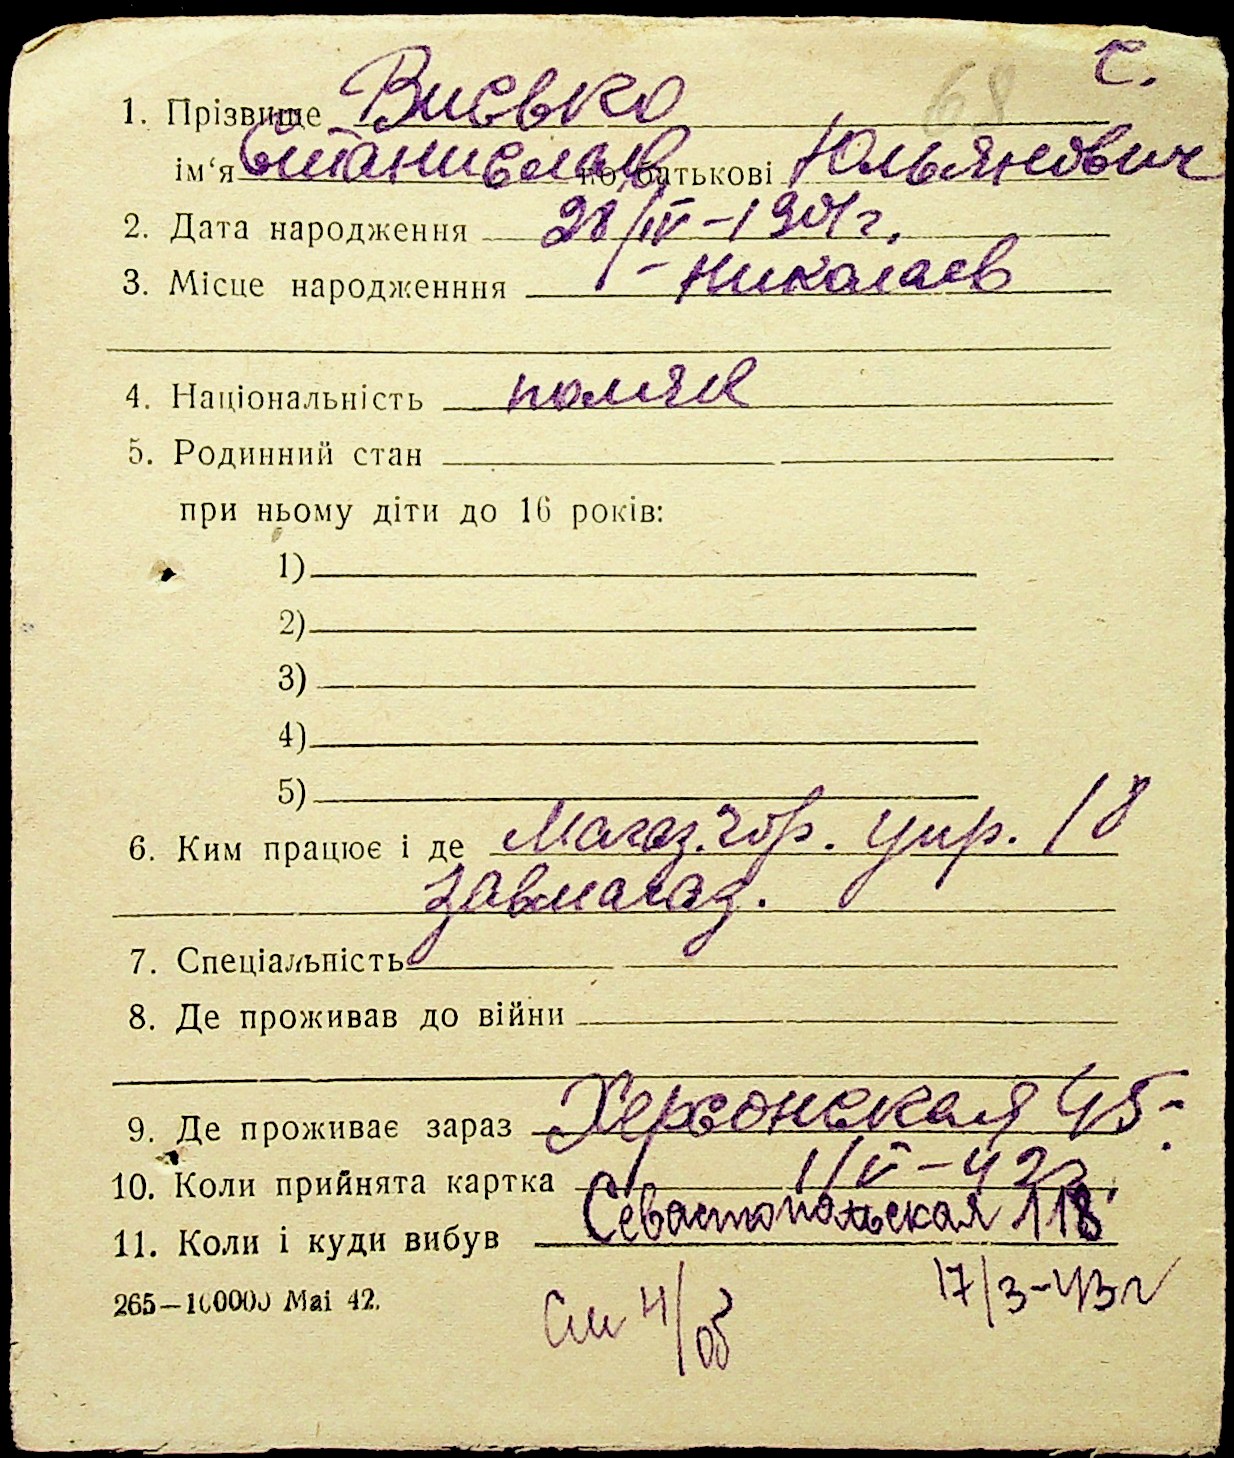 с.
68
1. Прізвище Висвко
ім‘я Станислав по батькові Юльянович
2. Дата народження 28/IV-1904г.
3. Місце народженння - Николаев
4. Національність поляк
5. Родинний стан
при ньому діти до 16 років:
1)
2)
3)
4)
5)
6. Ким працює і де Магаз. гор. упр. 18
завмагаз.
7. Спеціальність
8. Де проживав до війни
9. Де проживає зараз Херсонская 45-
10. Коли прийнята картка 1/V-42г.
11. Коли і куди вибув Севастопольская 118
17/3-43г
265—100000 Mai 42.
См н/об